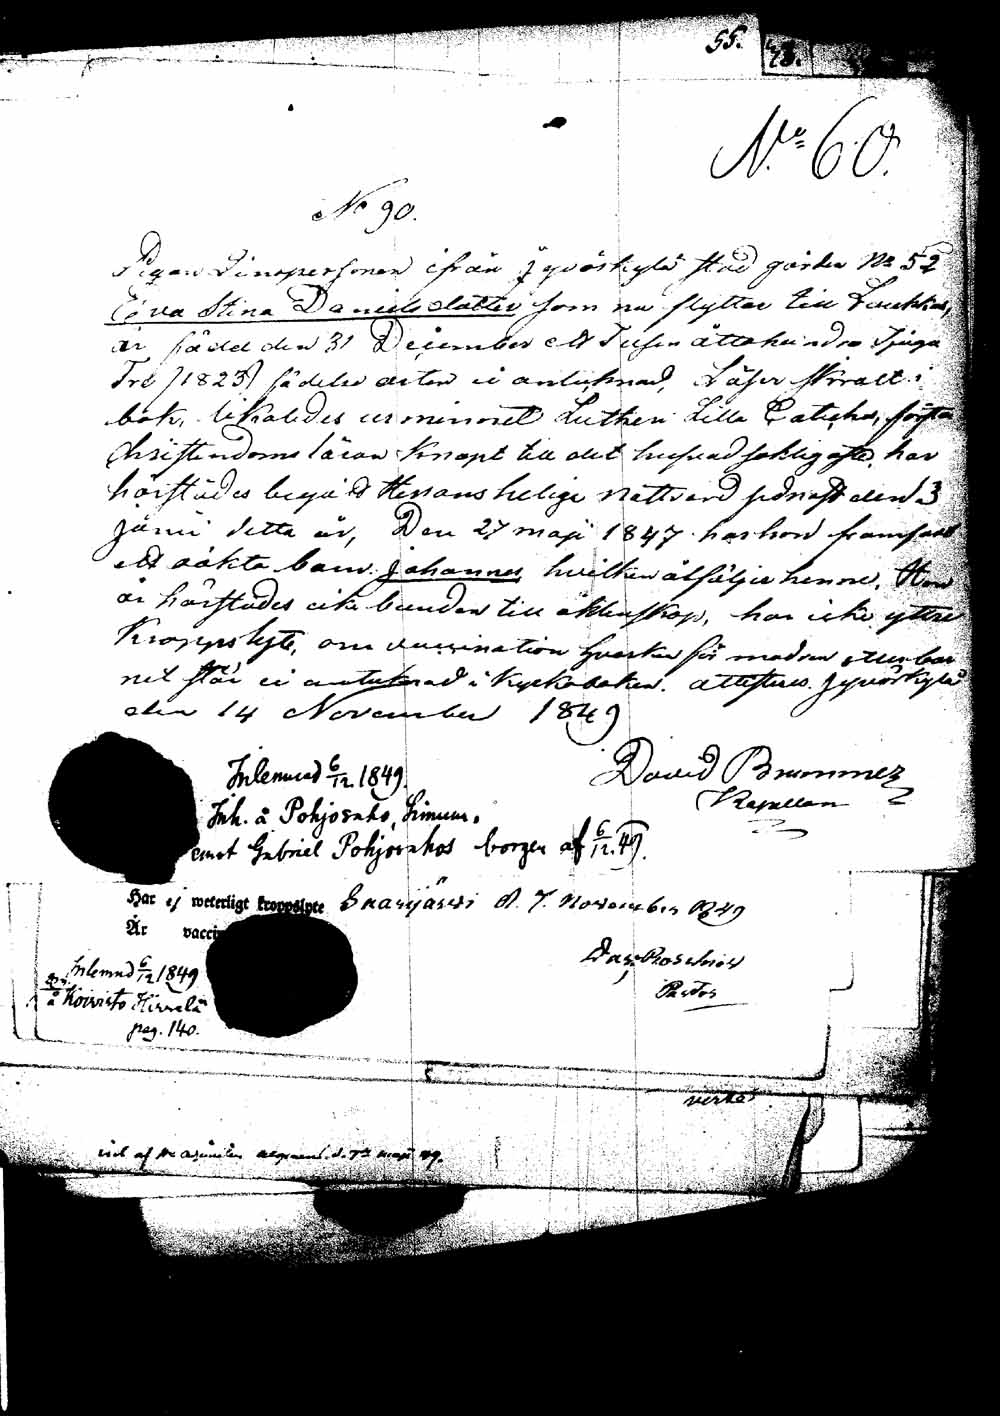 55.
73.
No 60.
No 90.
Pigan Qinspersonen ifrån Jyväskylä stad gården No 52
Eva Stina Danielsdotter som nu flyttar till Laukkas,
är född den 31 December ett Tusen åttahundra Tjugu
Tre (1823) födelse orten ei antecknad, Läser skralt i
bok, likaledes ur minnet Lutheri Lilla Cateches, förstår
Christendoms läran knapt till det hufvudsakligaste, har
härstädes begått Herrans helige nattvard sednast den 3
juni detta år, Den 27 maji 1847 har hon framfödt
ett oäkta barn Johannes, hvilken åtföljer henne. Hon
är härstädes icke bunden till äktenskap, har icke yttre
kroppslyte, om vaccination hvarken för modren eller bar
net står ei antecknad i kyrkoboken. attesteras. Jyväskylä
den 14 November 1849
David Brummer
Kapellan
Inlemnad 6/12 1849.
Inh. å Pohjosaho,
emot Gabriel Pohjosahos borgen af 6/12.49.
Har ej weterligt kroppslyte Saarijärvi d. 7. November 1849
Är vacci
Pastor
Inlemnad 6/12 1849
å Koivisto Hirvelä
pag. 140.
af maji 49.